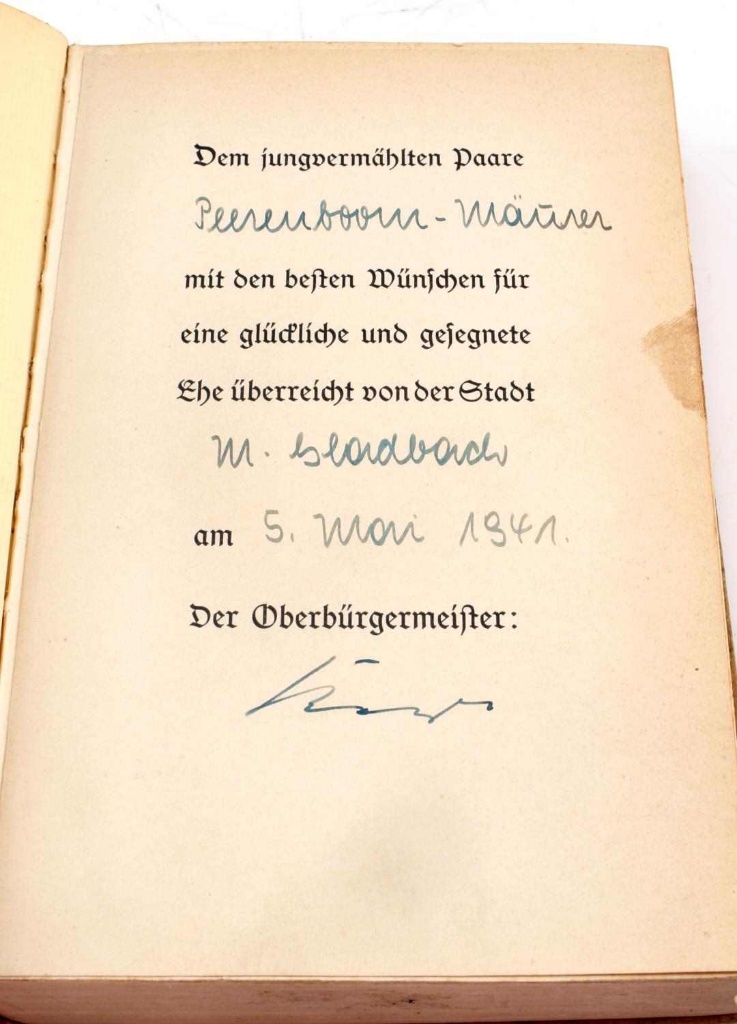 Dem jungvermählten Paare
Peerenboom - Mäurer
mit den besten Wünschen für
eine glückliche und gesegnete
Ehe überreicht von der Stadt
M. Gladbach
am 5. Mai 1941.
Der Oberbürgermeister: